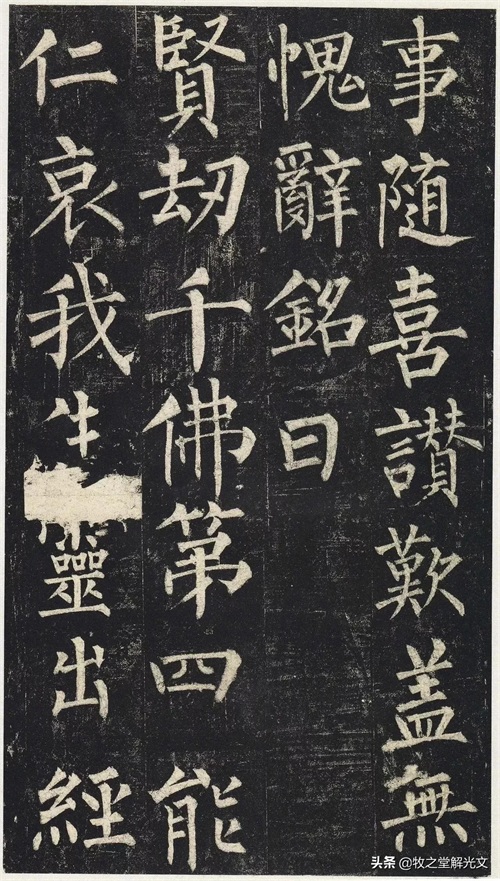 事隨喜讃歎盖無
愧辭銘曰
賢劫千佛第四能
仁哀我生靈出經
头条 @牧之堂解光文